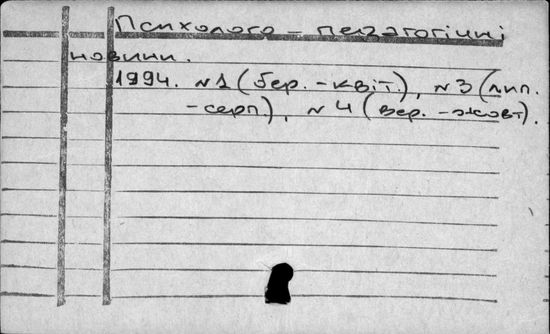 Психолого - педагогічні
новини.
1994. N 1 (бер. - квіт.), N 3 (лип.
- серп.), N 4 (вер. - жовт).